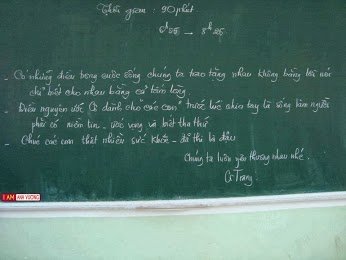 Thời gian: 90 phút.
6h55 - 8h25
- Có những điều trong cuộc sống chúng ta trao tặng nhau không bằng lời nói
chỉ biết cho nhau bằng cả tấm lòng.
- Điều nguyện ước Cô dành cho các con trước lúc chia tay là sống làm người
phải có niềm tin - ước vọng và biết tha thứ
- Chúc các con thật nhiều sức khỏe - đỗ thi là đậu
Chúng ta luôn yêu thương nhau nhé.
Cô Trang.
I AM ANH VƯƠNG